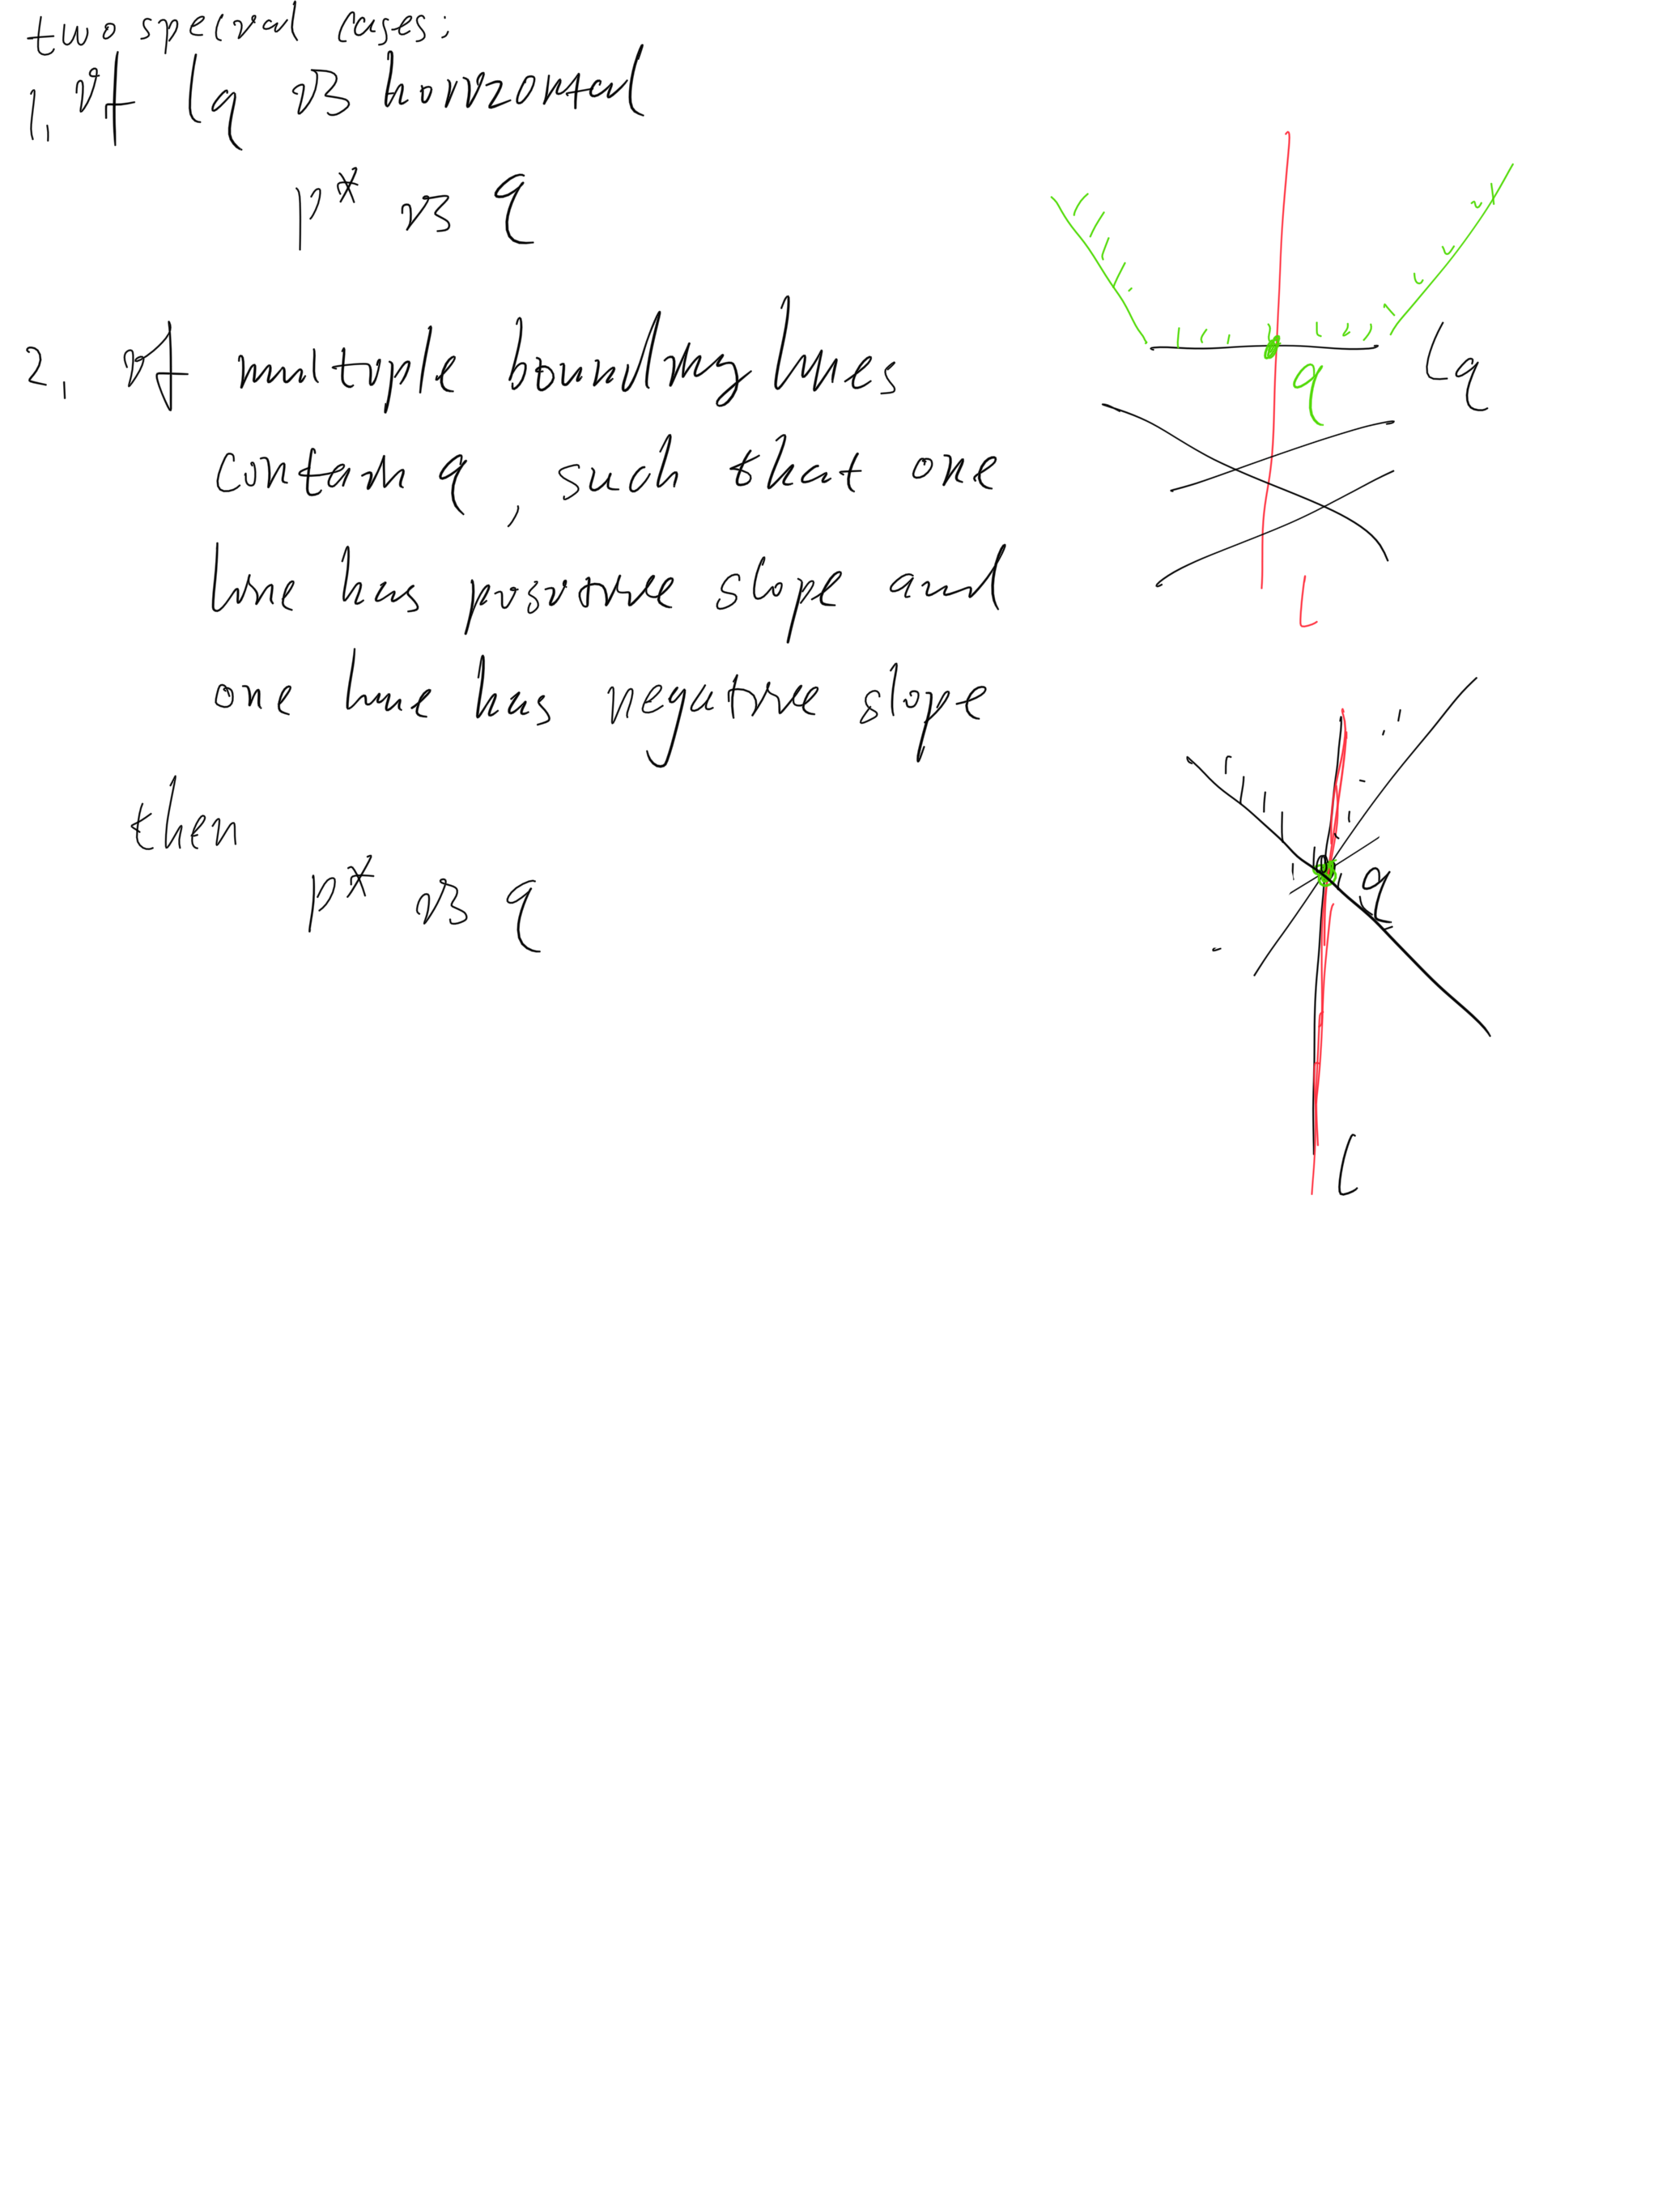 two special cases:
1. if lq is horizontal
p* is q
2. if multiple bounding lines
contain q, such that one
line has positive slope and
one line has negative slope
then
p* is q
lq
q
l
q
l